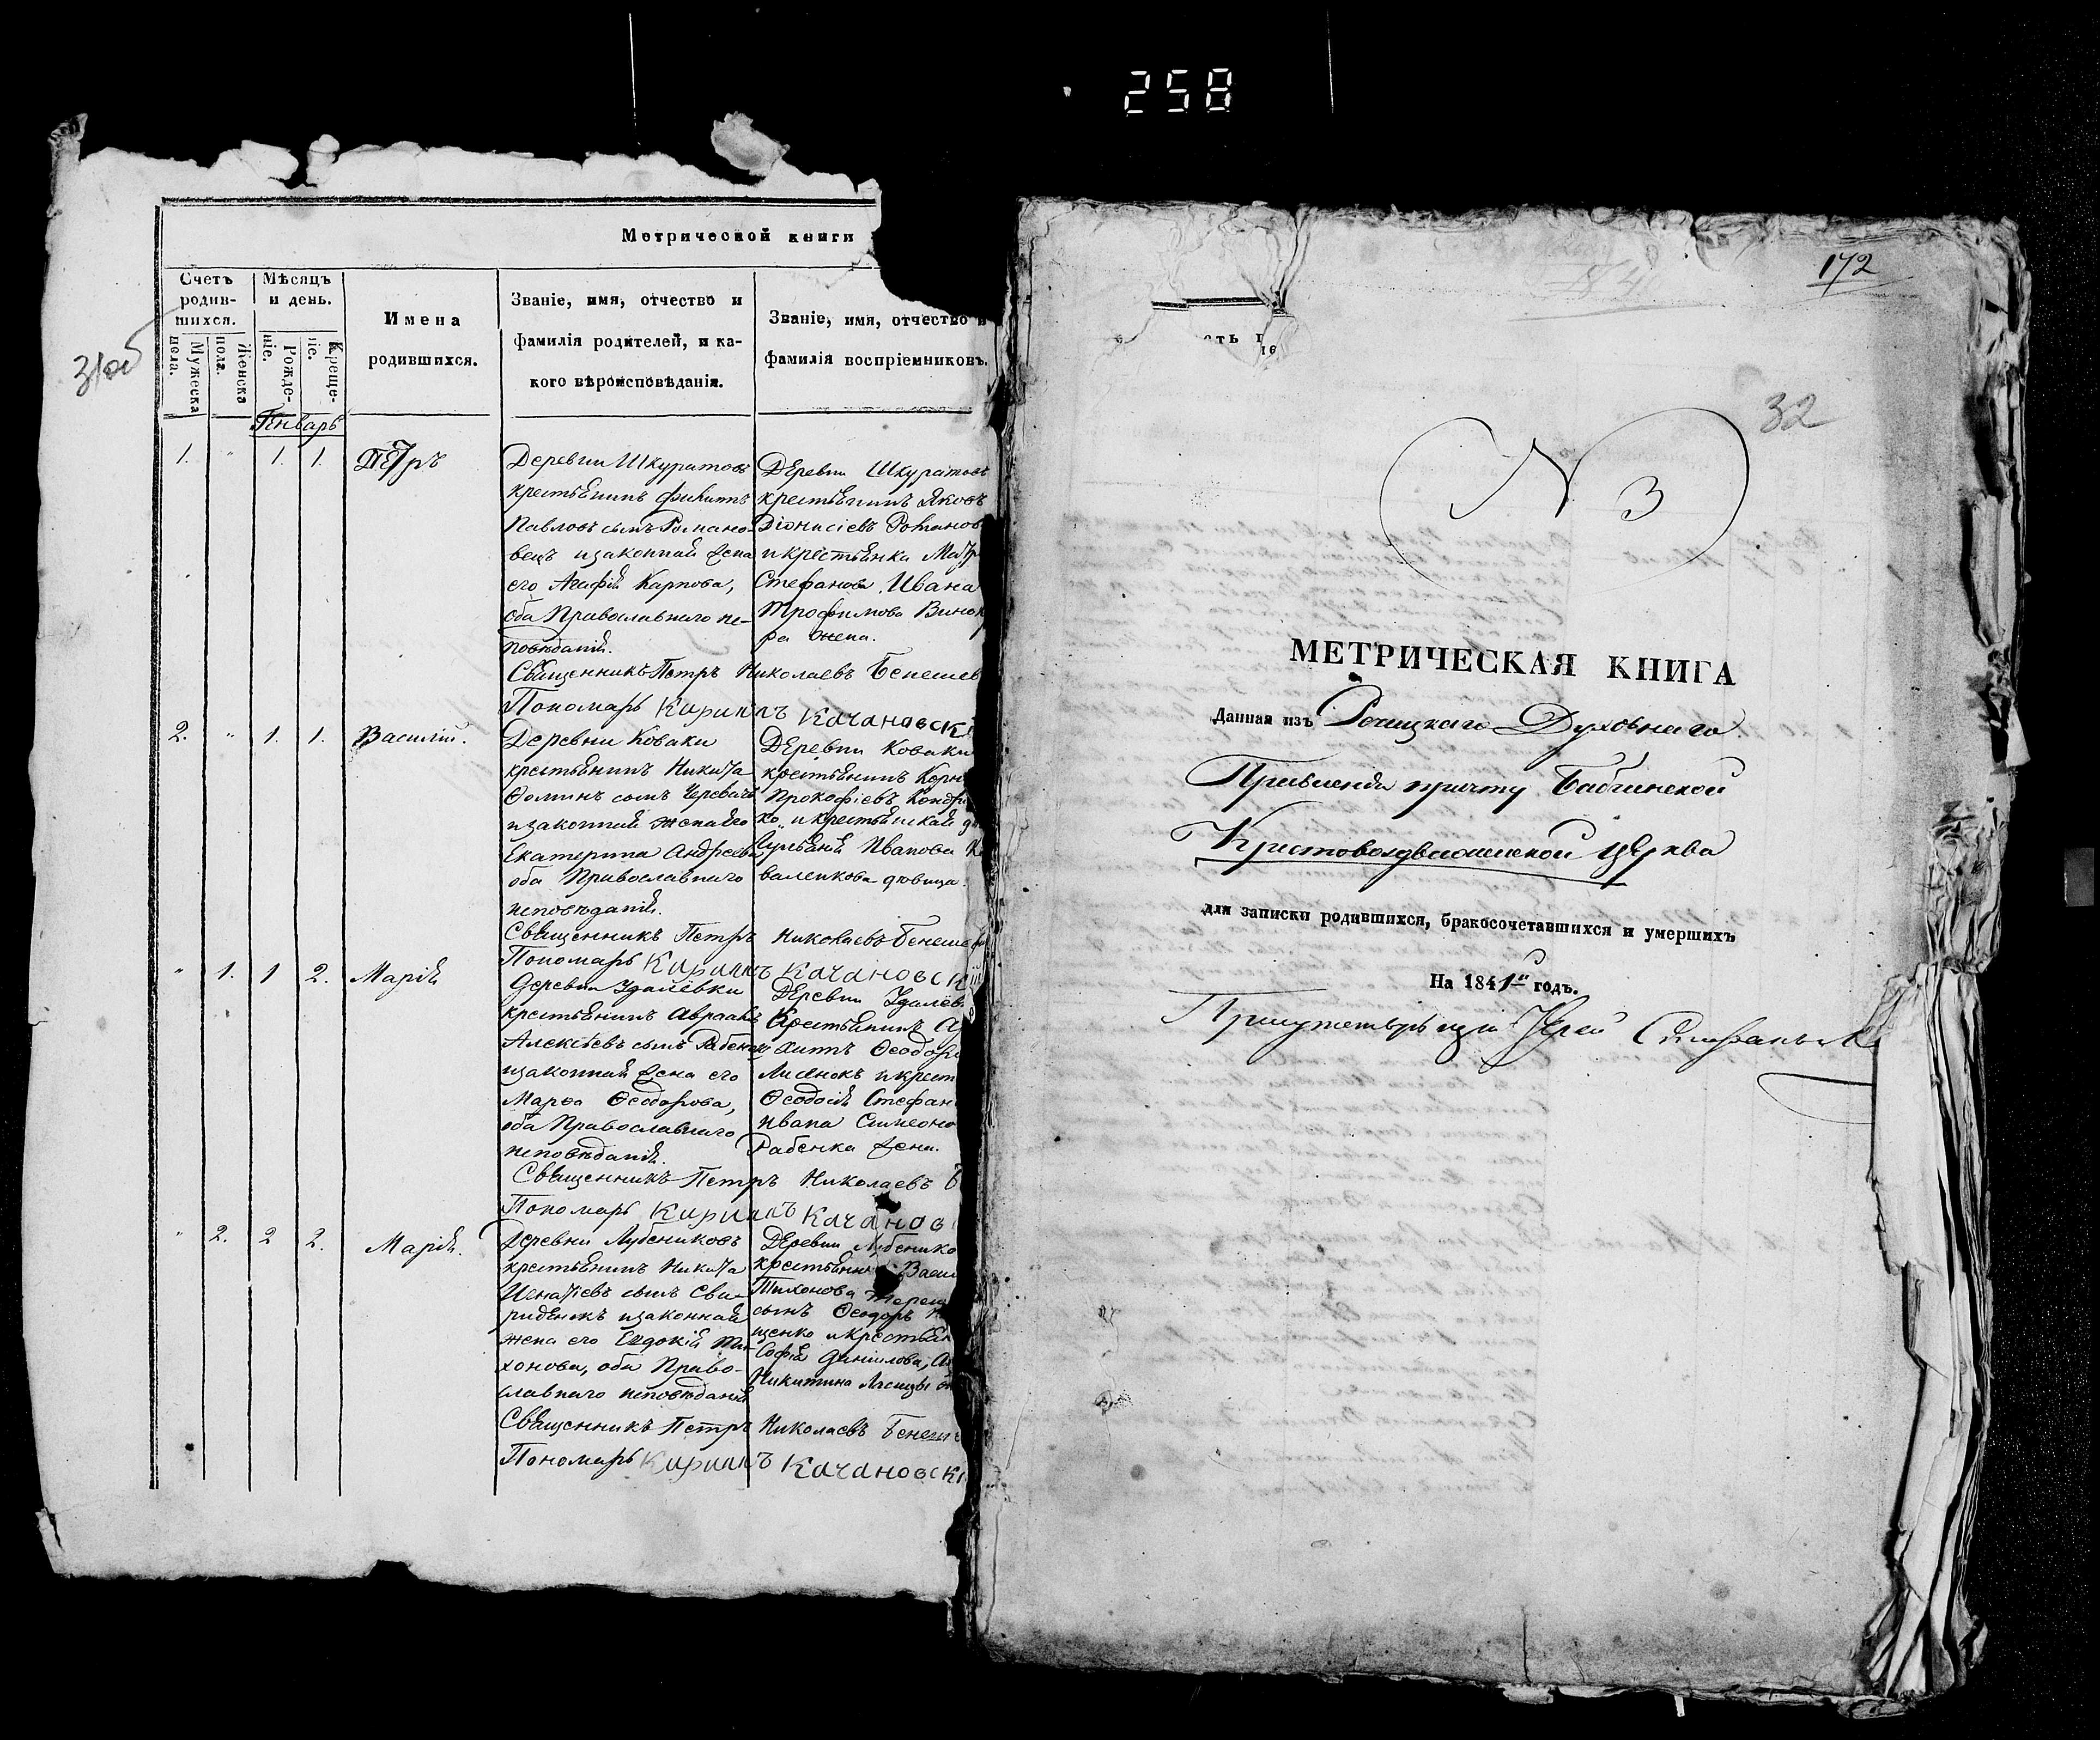 258
Метрической книги
Счетъ
родив-
шихся.
Мѣсяцъ
и день.
Имена
родившихся.
Званіе, имя, отчество и
фамилія родителей, и ка-
кого вѣроисповѣданія.
Званіе, имя, отчество и
фамилія воспріемниковъ.
Мужеска
пола.
Женска
пола.
Рожде-
ніе.
Креще-
ніе.
31об
Январь
1.
"
1.
1.
Петръ
Деревни Шкуратовъ
крестьянинъ
Павловъ сынъ Романо-
вецъ и законная жена
его Агафія Карпова,
оба Православнаго ис-
повѣданія.
Деревни Шкуратовъ
крестьянинъ Яковъ
Діонисіевъ Роман
и крестьянка Матр
Стефанова Ивана
Трофимова Винок
ра жена.
Священникъ Петръ Николаевъ Бенешев
Пономарь Кириллъ Качановскі
2.
"
1.
1.
Василій.
Деревни Коваки
крестьянинъ Никита
Ѳоминъ сынъ
и законная жена его
Екатерина Андреева
оба Православнаго
исповѣданія.
Деревни Коваки
крестьянинъ Корн
Прокофіевъ Кондр
ко, и крестьянская д
Иванова
валенкова дѣвица.
Священникъ Петръ Николаевъ Бенеше
Пономарь Кириллъ Качановскій
"
1.
1
2.
Марія
Деревни Удалёвки
крестьянинъ Авраамъ
Алексѣевъ сынъ Рабенок
и законная жена его
Марѳа Ѳеодорова,
оба Православнаго
исповѣданія.
Деревни Удалёв
Крестьянинъ
Ѳеодор
и крест
Ѳеодосія Стефан
Ивана Симеоно
Рабенка жена.
Священникъ Петръ Николаевъ Б
Пономарь Кириллъ Качанов
"
2.
2
2.
Марія.
Деревни Лубениковъ
крестьянинъ Никита
Игнатіевъ сынъ Сви-
риденокъ и законная
жена его Евдокія Ти-
хонова, оба Право-
славнаго исповѣданія
Деревни Лубенико
крестьянин Васи
Тихонова Терещ
сынъ Ѳеодоръ
щенко и крестьян
Софія Даниилова,
Никитина
Священникъ Петръ Николаевъ Бенеш
Пономарь Кириллъ Качановскі
172
32
N 3
МЕТРИЧЕСКАЯ КНИГА
Данная изъ Речицкаго Духовнаго
Правленія причту Бабчинской
Крестовоздвиженской церкви
для записки родившихся, бракосочетавшихся и умершихъ
На 1841й годъ.
Присутствующій Іерей Стефанъ